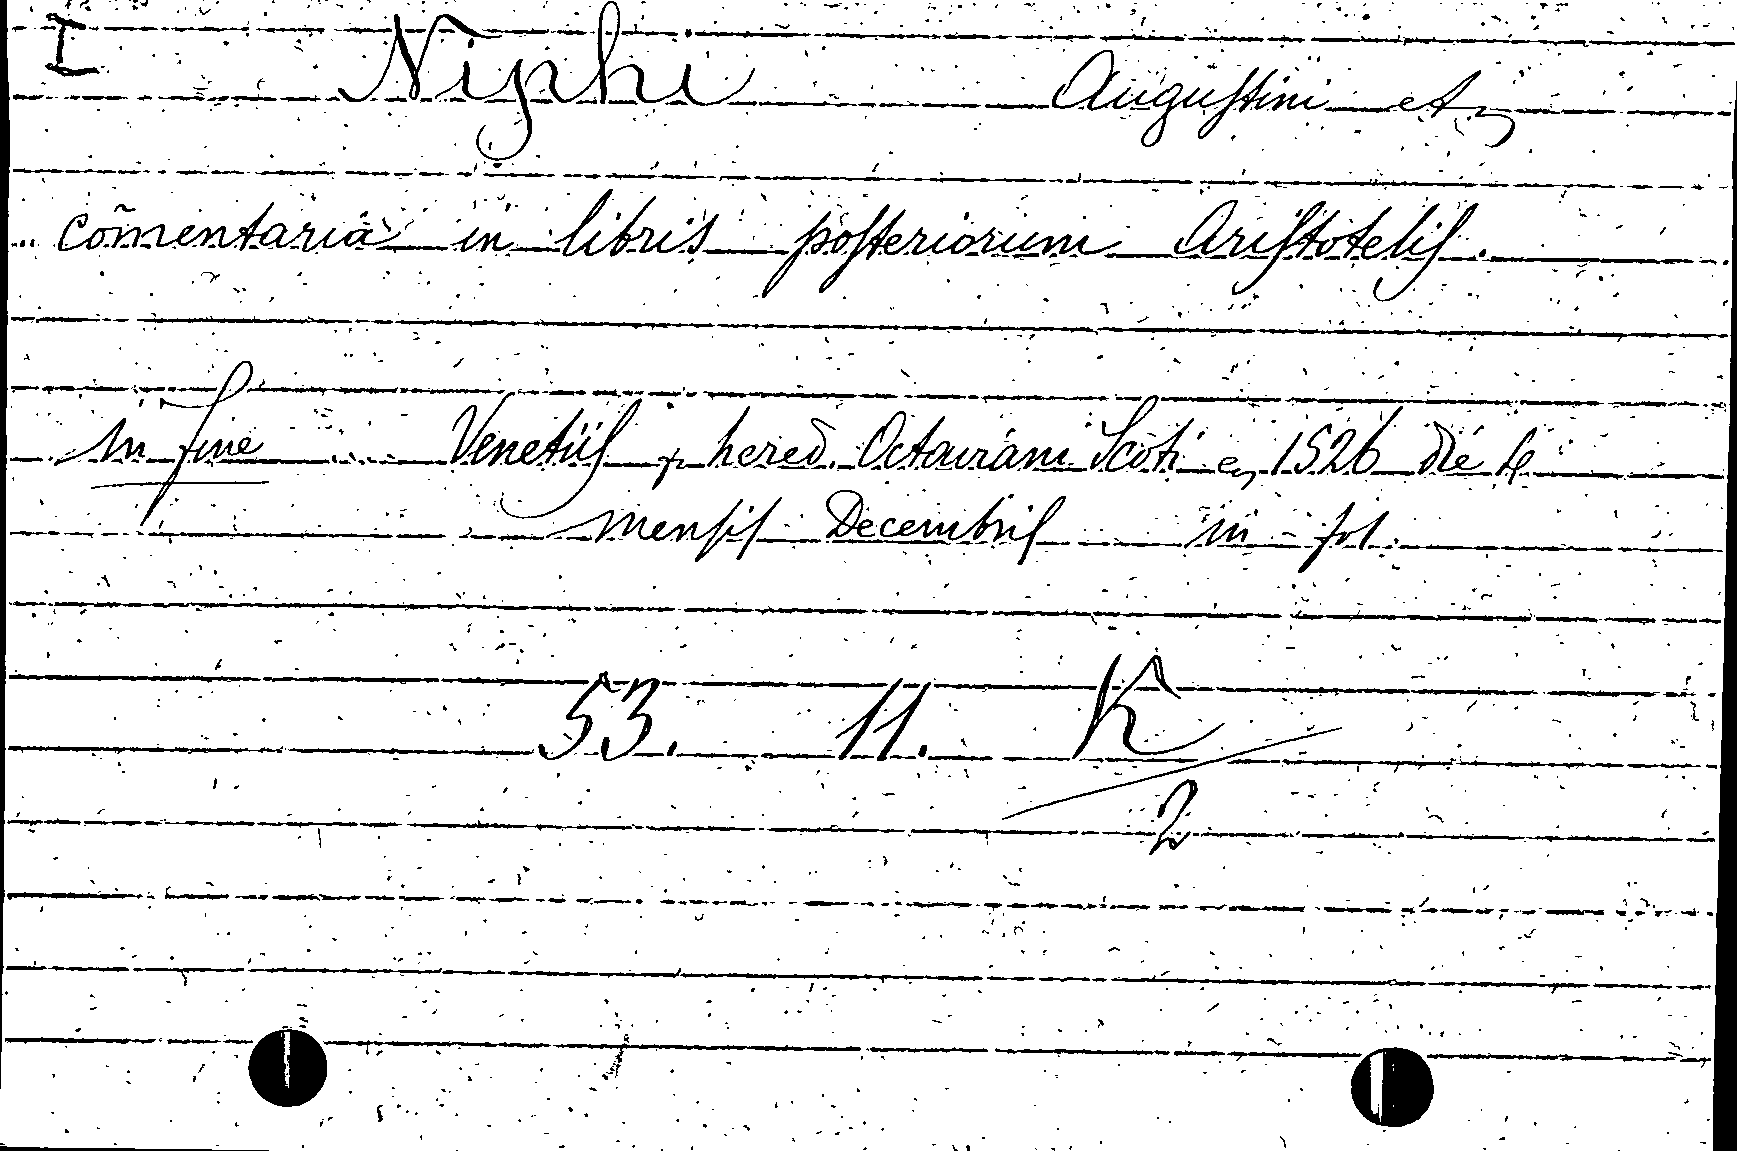 I Niphi Augustini et
.. com̃entaria in libris posteriorum Aristotelis.
in fine .... Venetiis p hered. Octaviani Scoti 1526 die
mensis Decembris in fol.
53. 11. K
2